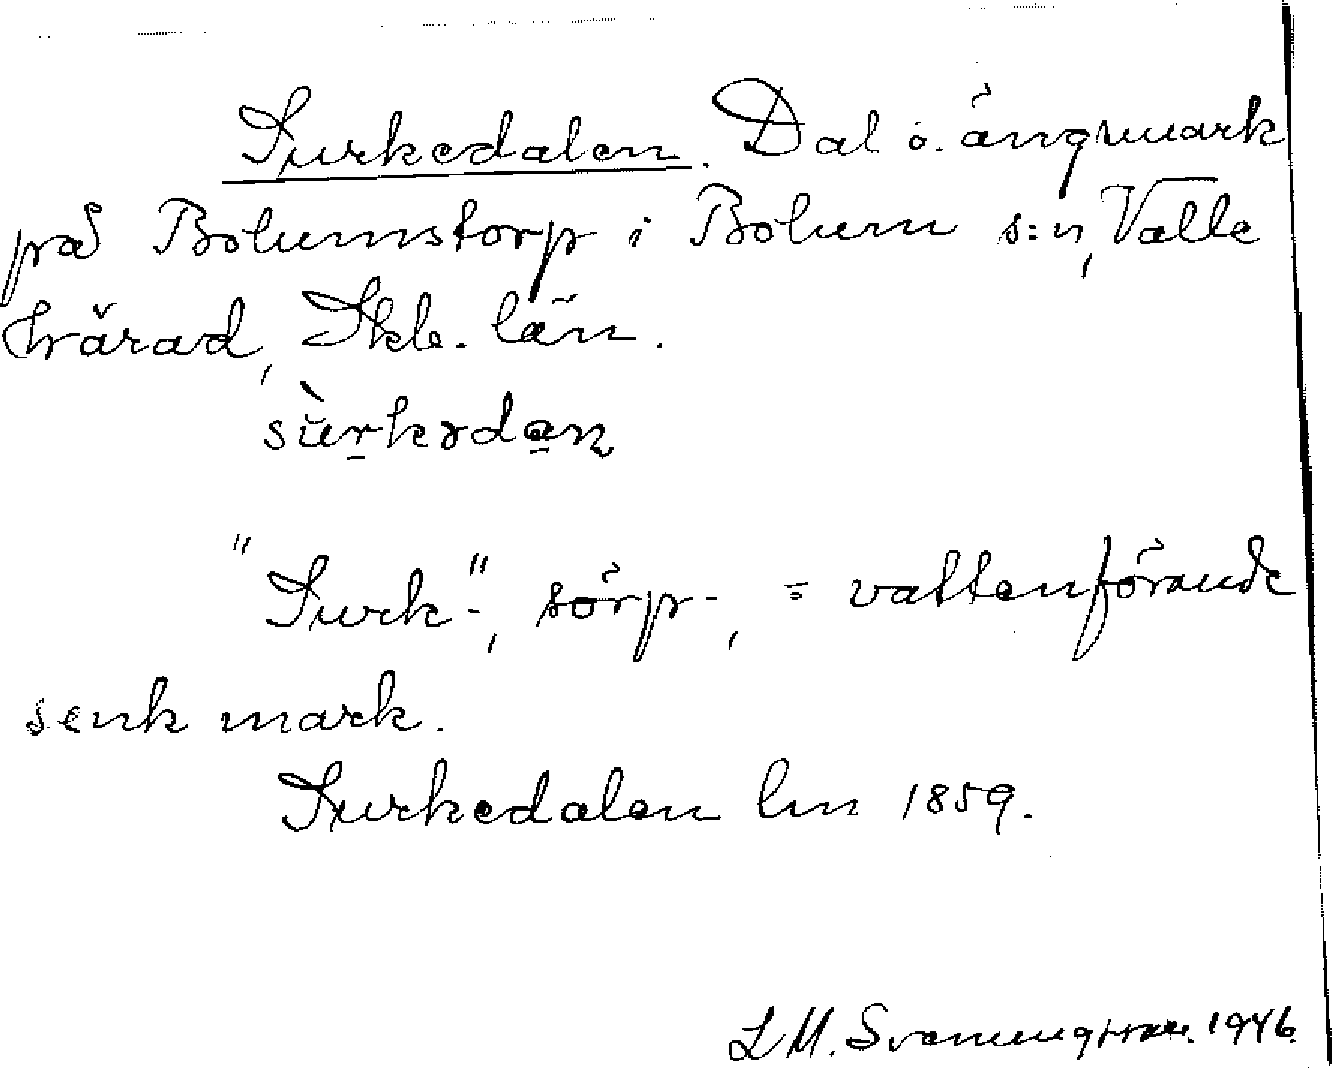 Surkedalen. Dal o. ängmark
på Bolumstorp i Bolum s:n, Valle
härad, Skb. län.
sùrkədan
"Surk-", sörp-, = vattenförande
senk mark.
Surkedalen lm 1859.
L M. Svanungsson. 1946.